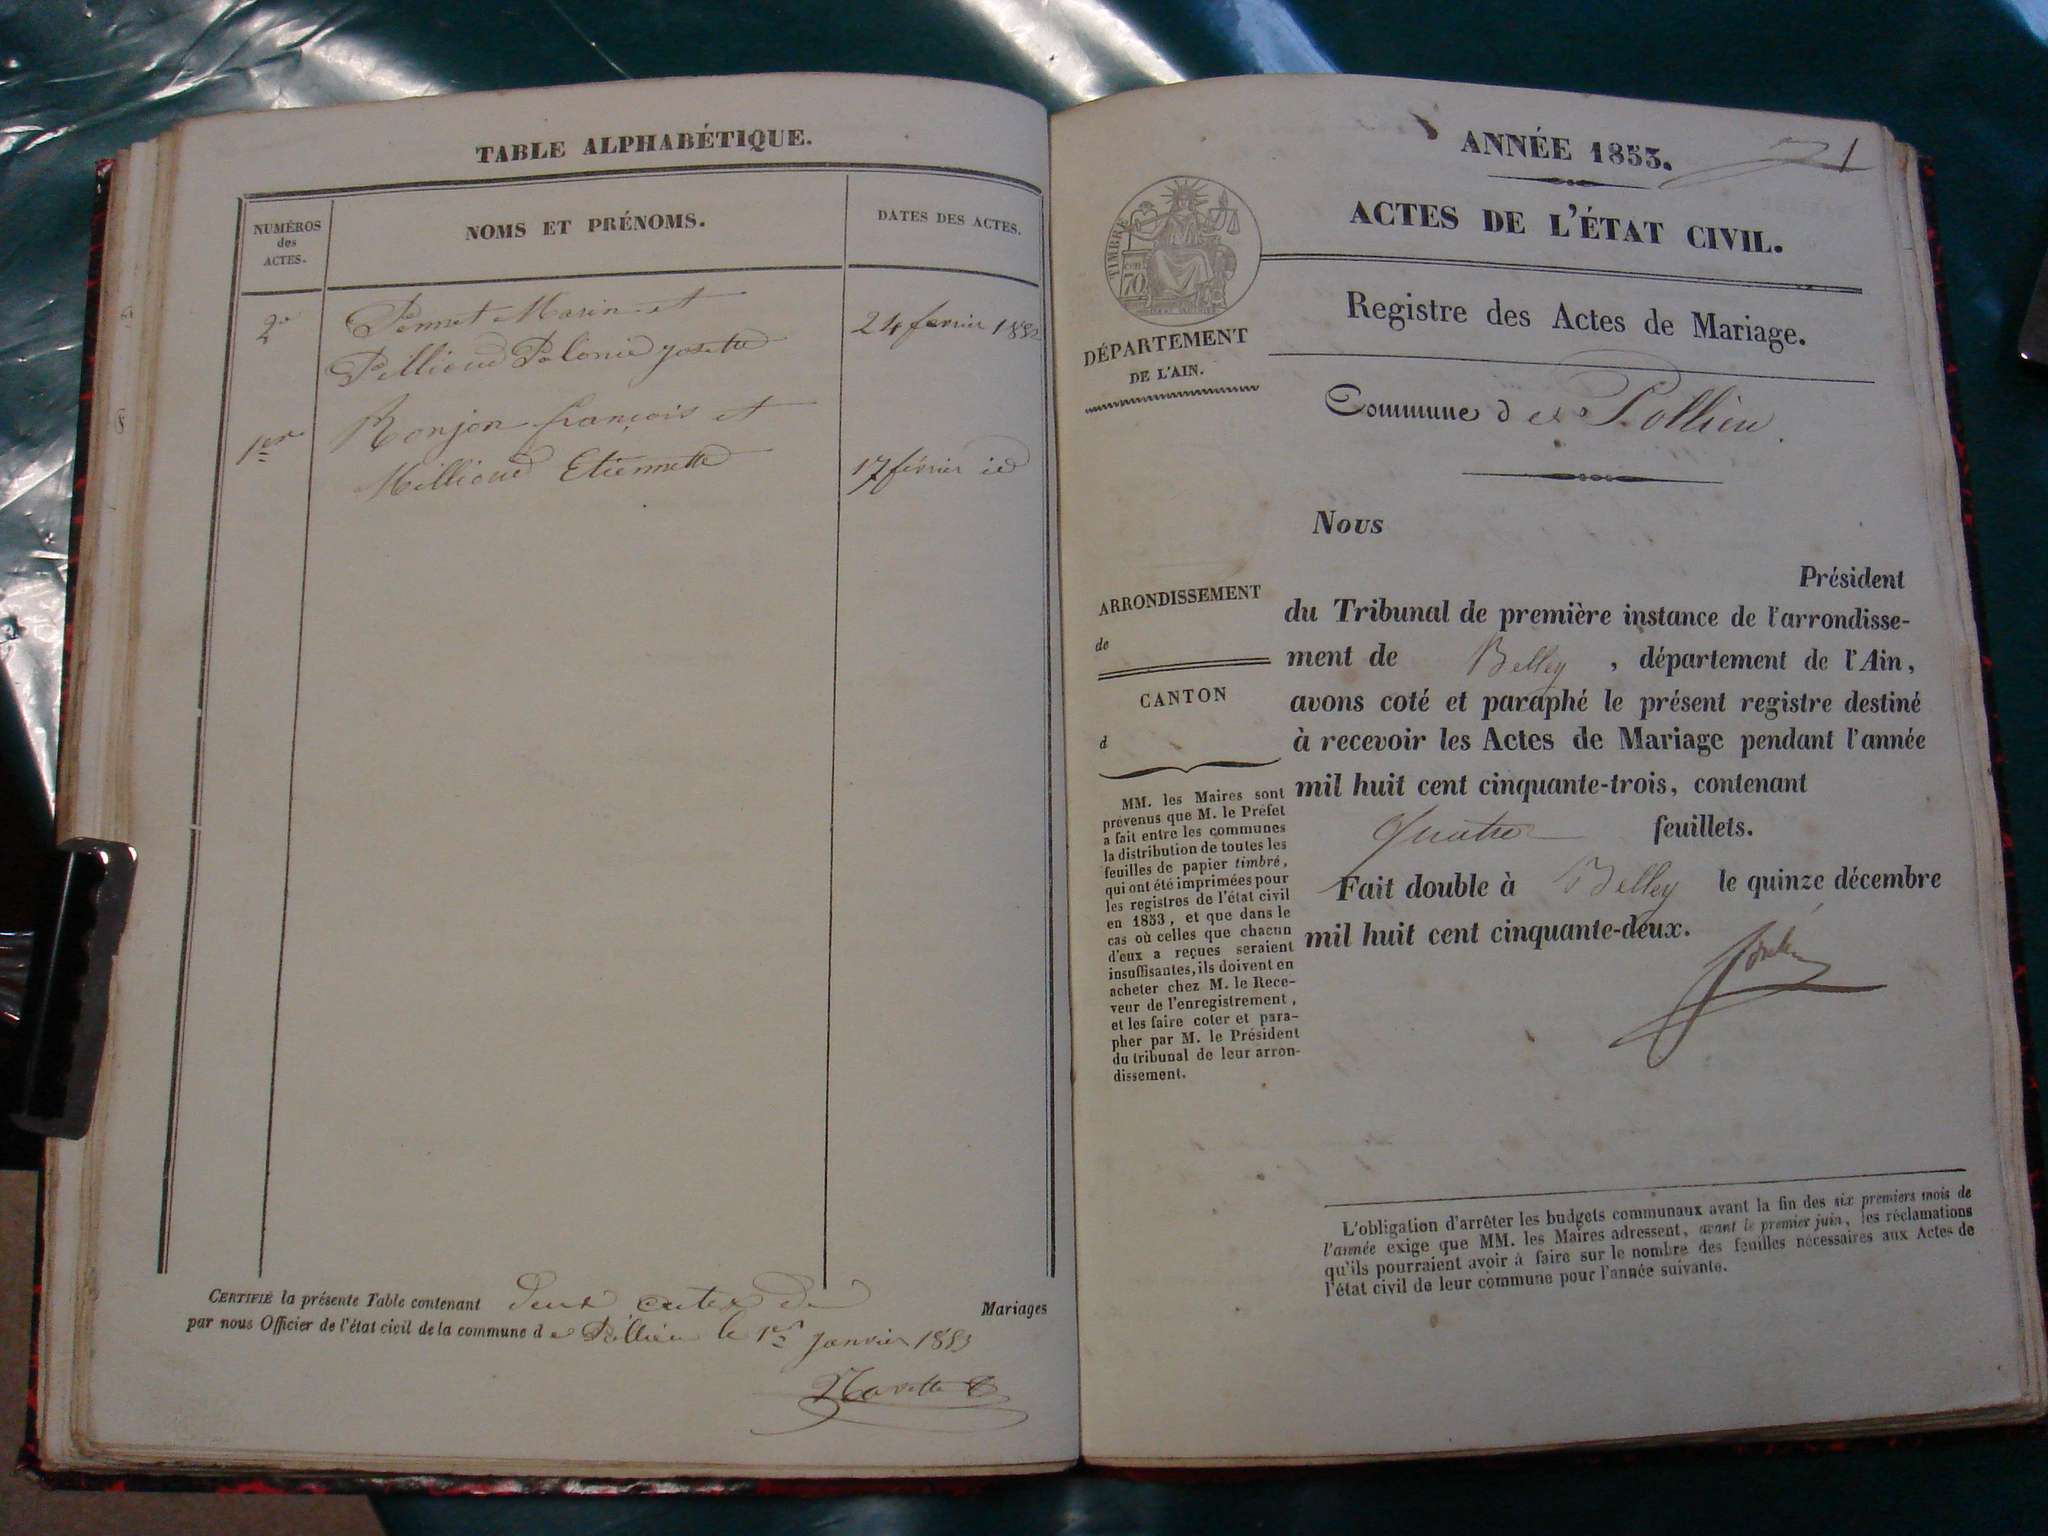 TABLE ALPHABÉTIQUE.
NUMÉROS
des
ACTES.
NOMS ET PRÉNOMS.
DATES DES ACTES.
2e
Pennet Marin et
24 février 1852
Pellioud Polonie josette
1er
Ronjon françois et
Millioud Etiennette
17 février id
CERTIFIÉ la présente Table contenant deux actes de Mariages
par nous Officier de l'état civil de la commune de Pollieu le 1er janvier 1853
ANNÉE 1853.
1
ACTES DE L'ÉTAT CIVIL.
TIMBRE
70
Registre des Actes de Mariage.
DÉPARTEMENT
DE L'AIN.
Commune de Pollieu.
Nous
Président
du Tribunal de première instance de l'arrondisse-
ment de Belley, département de l'Ain,
avons coté et paraphé le présent registre destiné
à recevoir les Actes de Mariage pendant l'année
mil huit cent cinquante-trois, contenant
quatre feuillets.
Fait double à Belley le quinze décembre
mil huit cent cinquante-deux.
ARRONDISSEMENT
de
CANTON
d
MM. les Maires sont
prévenus que M. le Préfet
a fait entre les communes
la distribution de toutes les
feuilles de papier timbré,
qui ont été imprimées pour
les registres de l'état civil
en 1853, et que dans le
cas où celles que chacun
d'eux a reçues seraient
insuffisantes, ils doivent en
acheter chez M. le Rece-
veur de l'enregistrement,
et les faire coter et para-
pher par M. le Président
du tribunal de leur arron-
dissement.
L'obligation d'arrêter les budgets communaux avant la fin des six premiers mois de
l'année exige que MM. les Maires adressent, avant le premier juin, les réclamations
qu'ils pourraient avoir à faire sur le nombre des feuilles nécessaires aux Actes de
l'état civil de leur commune pour l'année suivante.